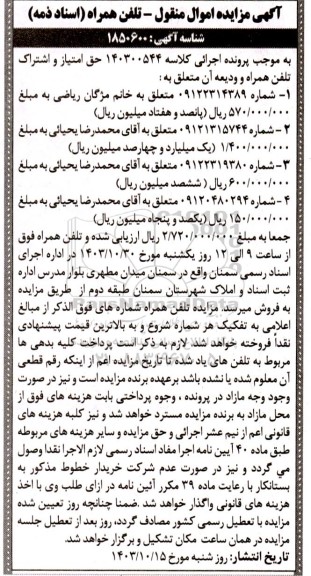 آگهی مزایده اموال منقول – تلفن همراه (اسناد ذمه)
شناسه آگهی: ۱۸۵۰۶۰۰
به موجب پرونده اجرائی کلاسه ۱۴۰۳۰۰۵۴۴ حق امتیاز و اشتراک
تلفن همراه و ودیعه آن متعلق به:
۱- شماره ۰۹۱۲۲۳۱۴۳۸۹ متعلق به خانم مژگان ریاضی به مبلغ
۵۷۰/۰۰۰/۰۰۰ ریال (پانصد و هفتاد میلیون ریال)
۲- شماره ۰۹۱۲۱۳۱۵۷۴۴ متعلق به آقای محمدرضا یحیائی به مبلغ
۱/۴۰۰/۰۰۰/۰۰۰ (یک میلیارد و چهارصد میلیون ریال)
۳- شماره ۰۹۱۲۲۳۱۹۳۸۰ متعلق به آقای محمدرضا یحیائی به مبلغ
۶۰۰/۰۰۰/۰۰۰ ریال ( ششصد میلیون ریال)
۴- شماره ۰۹۱۲۰۴۸۰۲۹۴ متعلق به آقای محمدرضا یحیائی به مبلغ
۱۵۰/۰۰۰/۰۰۰ ریال (یکصد و پنجاه میلیون ریال)
جمعا به مبلغ ۲/۷۲۰/۰۰۰/۰۰۰ ریال ارزیابی شده و تلفن همراه فوق
از ساعت ۹ الی ۱۲ روز یکشنبه مورخ ۱۴۰۳/۱۰/۳۰ در اداره اجرای
اسناد رسمی سمنان واقع در سمنان میدان مطهری بلوار مدرس اداره
ثبت اسناد و املاک شهرستان سمنان طبقه دوم از طریق مزایده
به فروش میرسد. مزایده تلفن همراه شماره های فوق الذکر از مبالغ
اعلامی به تفکیک هر شماره شروع و به بالاترین قیمت پیشنهادی
نقداً فروخته خواهد شد. لازم به ذکر است پرداخت کلیه بدهی ها
مربوط به تلفن های یاد شده تا تاریخ مزایده اعم از اینکه رقم قطعی
آن معلوم شده یا نشده باشد برعهده برنده مزایده است و نیز در صورت
وجود وجه مازاد در پرونده ، وجوه پرداختی بابت هزینه های فوق از
محل مازاد به برنده مزایده مسترد خواهد شد و نیز کلیه هزینه های
قانونی اعم از نیم عشر اجرائی و حق مزایده و سایر هزینه های مربوطه
طبق ماده ۴۰ آیین نامه اجرا مفاد اسناد رسمی لازم الاجرا نقدا وصول
می گردد و نیز در صورت عدم شرکت خریدار خطوط مذکور به
بستانکار با رعایت ماده ۳۹ مکرر آئین نامه در ازای طلب وی با اخذ
هزینه های قانونی واگذار خواهد شد .ضمنا چنانچه روز تعیین شده
مزایده با تعطیل رسمی کشور مصادف گردد، روز بعد از تعطیل جلسه
مزایده در همان ساعت مکان تشکیل و برگزار خواهد شد.
تاریخ انتشار: روز شنبه مورخ ۱۴۰۳/۱۰/۱۵